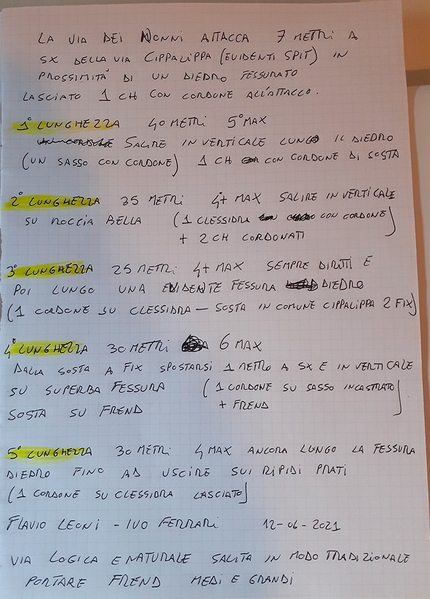 LA VIA DEI NONNI ATTACCA 7 METRI A
SX DELLA VIA CIPPALIPPA (EVIDENTI SPIT) IN
PROSSIMITÁ DI UN DIEDRO FESSURATO
LASCIATO 1 CH CON CORDONE ALL'ATTACCO.
1° LUNGHEZZA 40 METRI 5° MAX
SALIRE IN VERTICALE LUNGO IL DIEDRO
(UN SASSO CON CORDONE) 1 CH CON CORDONE DI SOSTA
2° LUNGHEZZA 35 METRI 4+ MAX SALIRE IN VERTICALE
SU ROCCIA BELLA (1 CLESSIDRA CON CORDONE)
+ 2 CH CORDONATI
3° LUNGHEZZA 25 METRI 4+ MAX SEMPRE DIRITTI E
POI LUNGO UNA EVIDENTE FESSURA DIEDRO
(1 CORDONE SU CLESSIDRA — SOSTA IN COMUNE CIPPALIPPA 2 FIX)
4° LUNGHEZZA 30 METRI 6 MAX
DALLA SOSTA A FIX SPOSTARSI 1 METRO A SX E IN VERTICALE
SU SUPERBA FESSURA (1 CORDONE SU SASSO INCASTRATO)
SOSTA SU FREND + FREND
5° LUNGHEZZA 30 METRI 4 MAX ANCORA LUNGO LA FESSURA
DIEDRO FINO AD USCIRE SUI RIPIDI PRATI
(1 CORDONE SU CLESSIDRA LASCIATO)
FLAVIO LEONI - IVO FERRARI 12-06-2021
VIA LOGICA E NATURALE SALITA IN MODO TRADIZIONALE
PORTARE FREND MEDI E GRANDI